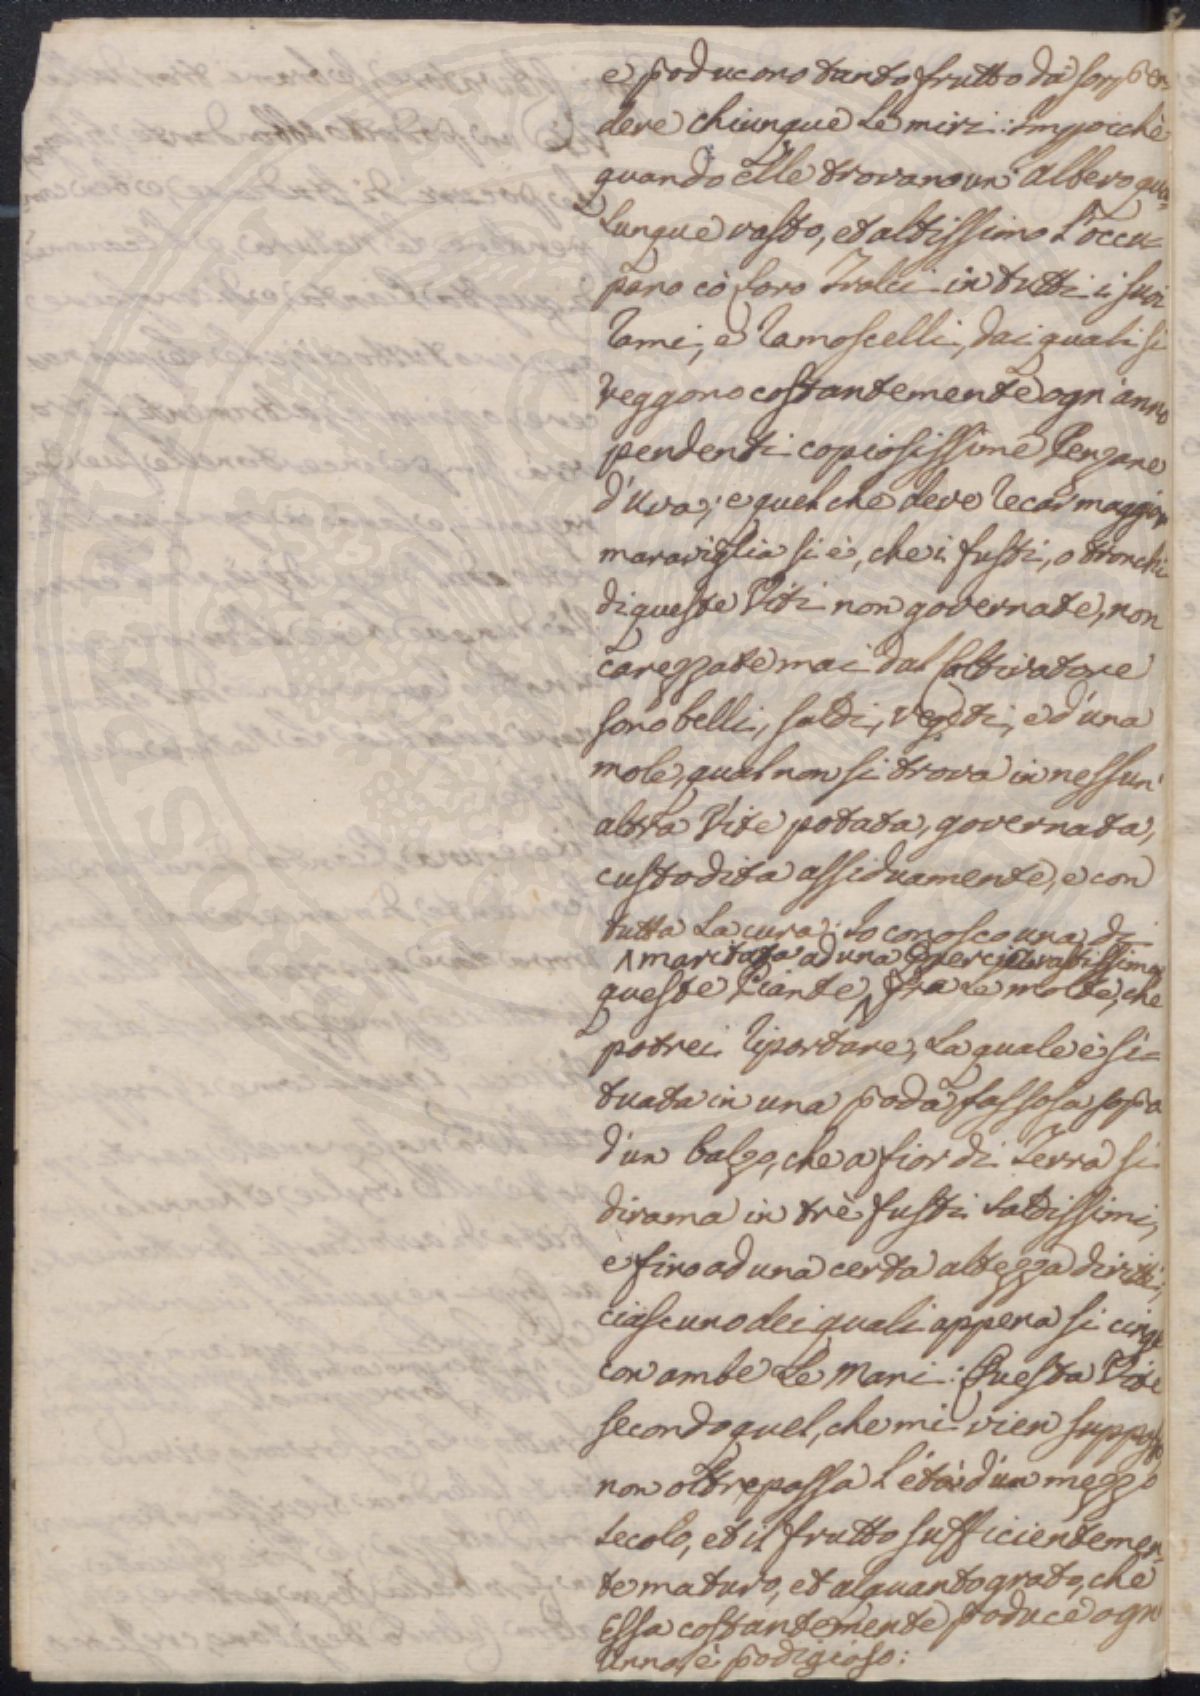 e producono tanto frutto da sorpren-
dere chiunque le miri: impoichè
quando elle trovano un' albero qua-
lunque vasto, et altissimo l'occu-
pano co' loro tralci in tutti i suoi
rami, e ramoscelli, dai quali si
veggono costantemente ogn'anno
pendenti copiosissime Penzane
d'Uva; e quel che deve recar maggior
maraviglia si è, che i fusti, o tronchi
di queste Viti non governate, non
carezzate mai dal Coltivatore
sono belli, saldi, vegeti, e d'una
mole, qual non si trova in nessun'
altra Vite potata, governata,
custodita assiduamente, e con
tutta la cura: Io conosco una di
^ maritata ad una Querci vastissima
queste Piante ^ fra le molte, che
potrei riportare, la quale è si-
tuata in una proda sassosa, sopra
d'un balzo, che a fior di Terra si
dirama in trè fusti saldissimi,
e fino ad una certa altezza diritti,
ciascuno dei quali appena si cinge
con ambe le Mani: Questa Vite
secondo quel, che mi vien supposto
non oltrepassa l'età d'un mezzo
secolo, et il frutto sufficientemen-
te maturo, et alquanto grato, che
Essa costantemente produce ogn'
Anno, è prodigioso: